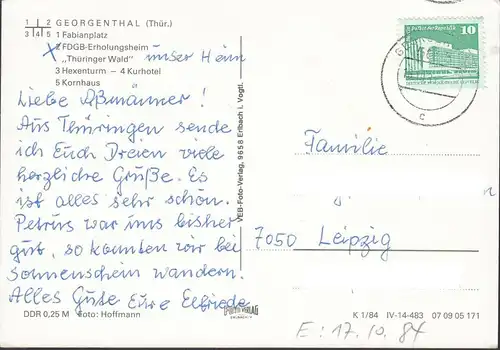 1 | 2 GEORGENTHAL (Thür.)
3|4|5 1 Fabianplatz
x 2 FDGB-Erholungsheim
„Thüringer Wald" unser Heim
3 Hexenturm – 4 Kurhotel
5 Kornhaus
Liebe Aßmänner!
Aus Thüringen sende
ich Euch Dreien viele
herzliche Grüße. Es
ist alles sehr schön.
Petrus war uns bisher
gut, so konnten wir bei
Sonnenschein wandern.
Alles Gute Eure Elfriede
DDR 0,25 M Foto: Hoffmann
VEB-Foto-Verlag, 9658 Erlbach i. Vogtl.
FOTO VERLAG
ERLBACH
Palast der Republik
10
DDR
c
Familie
7050 Leipzig
K 1/84 IV-14-483 07 09 05 171
E: 17.10.84